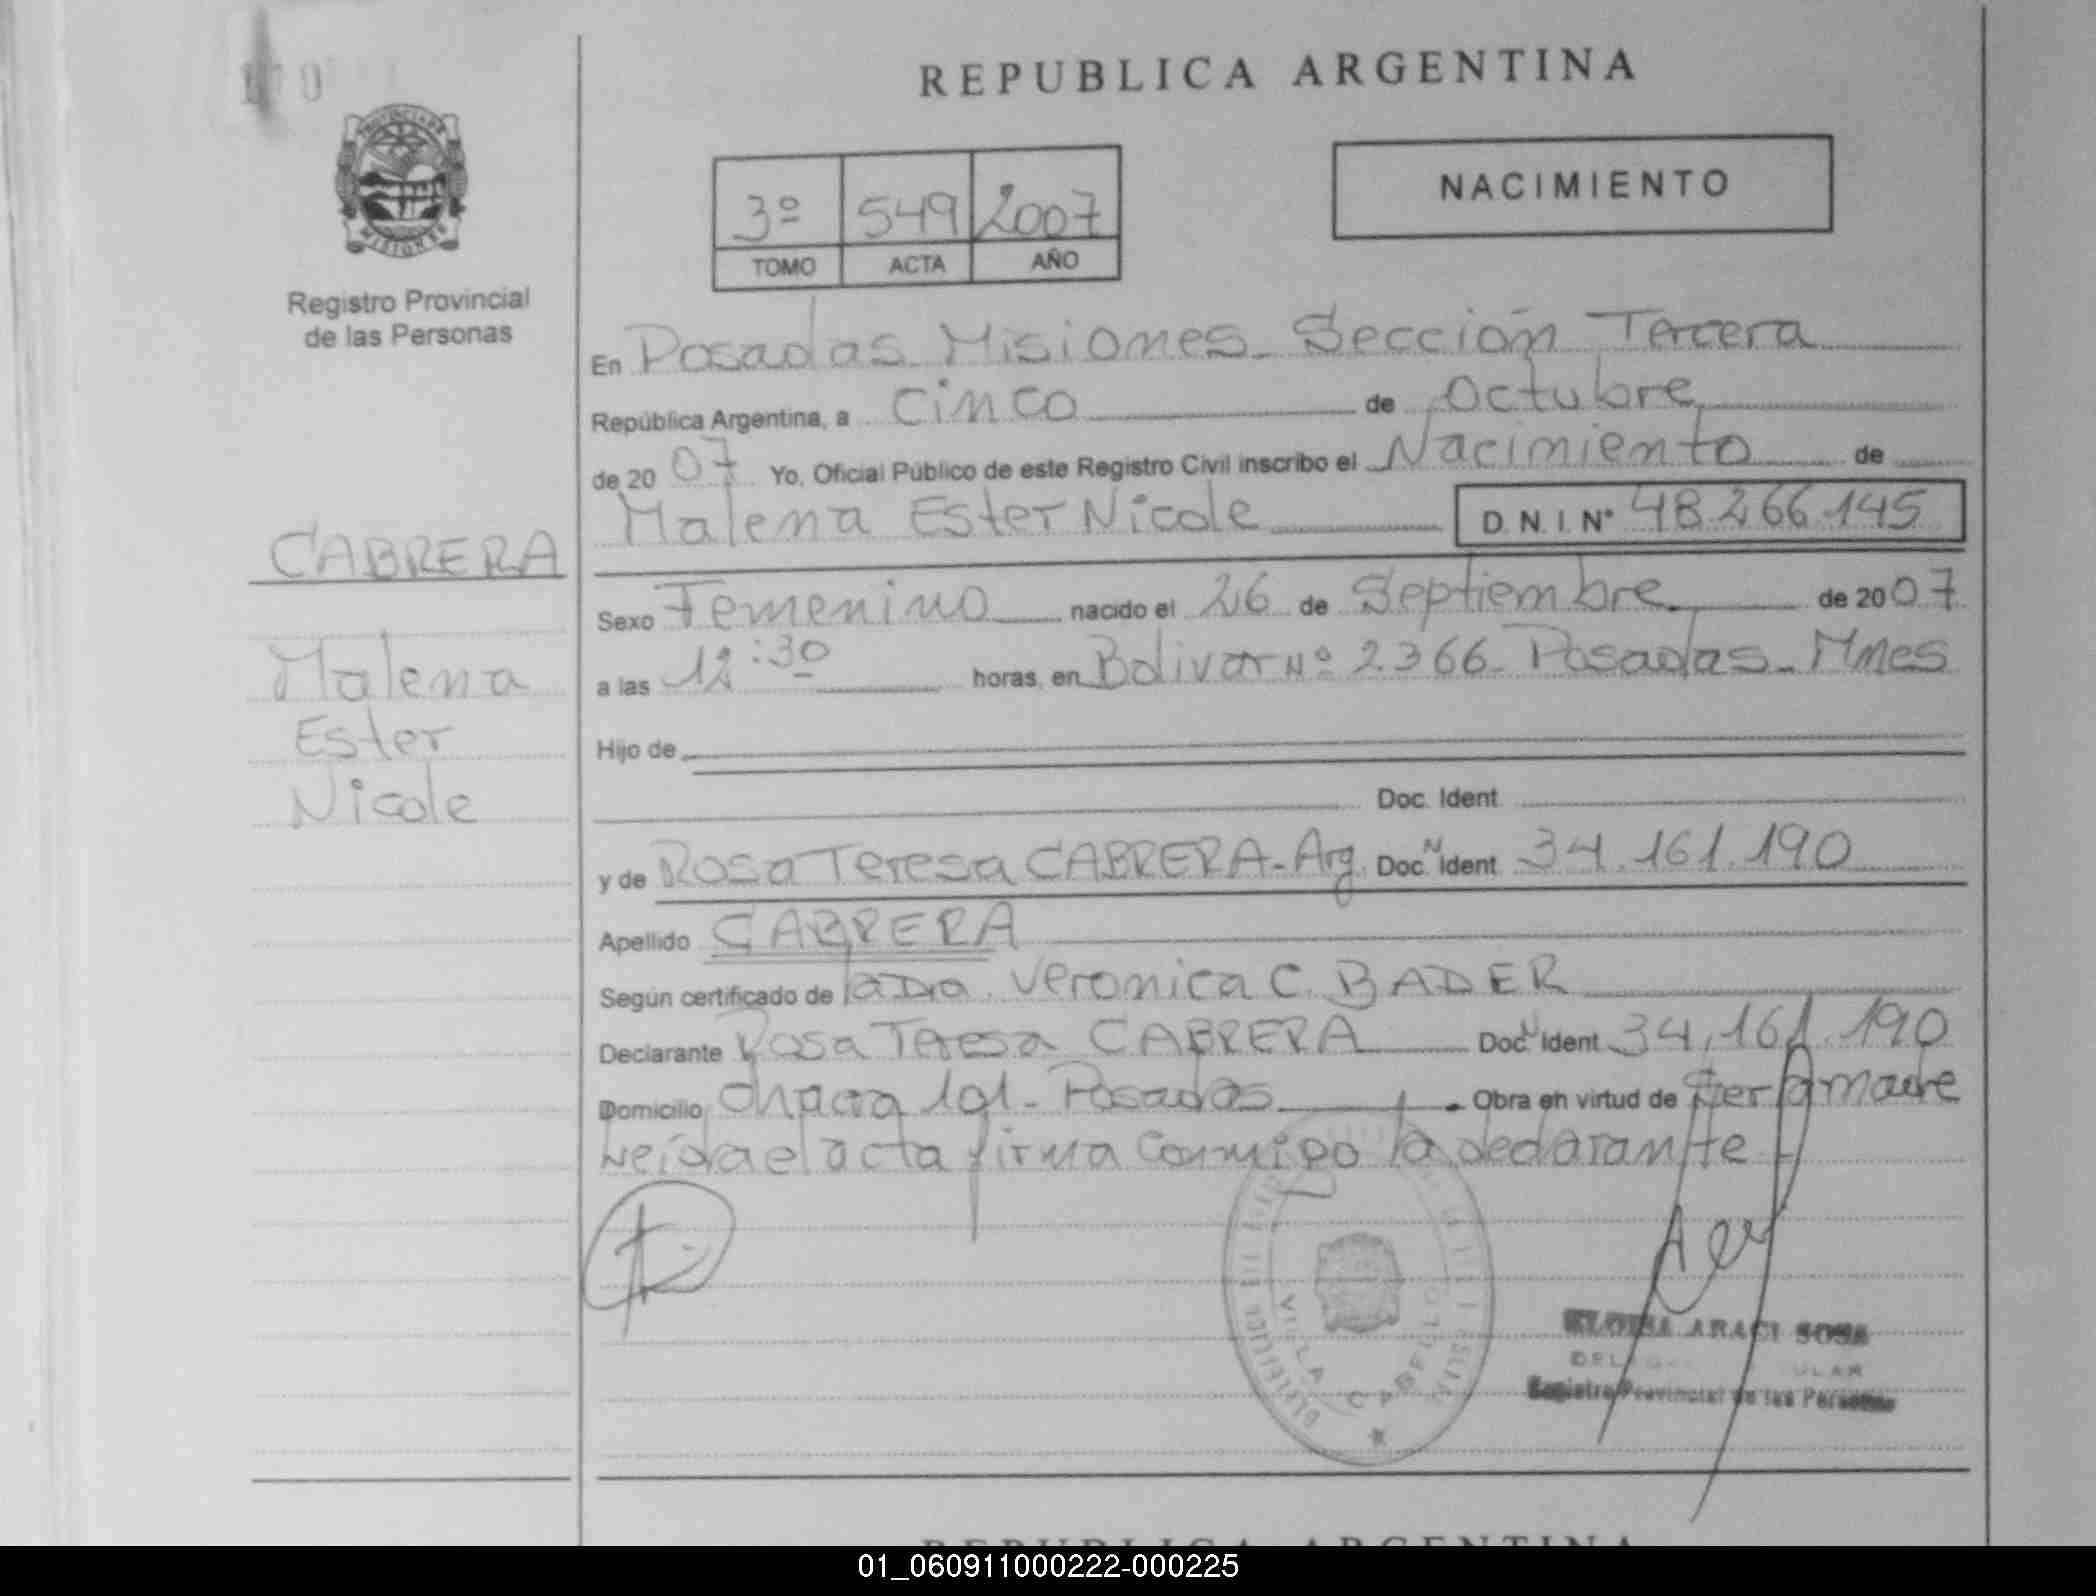 REPUBLICA ARGENTINA
PROVINCIA DE
MISIONES
Registro Provincial
de las Personas
NACIMIENTO
3º 549 2007
TOMO ACTA AÑO
En Posadas Misiones Sección Tercera
República Argentina, a Cinco de Octubre
de 2007 Yo, Oficial Público de este Registro Civil inscribo el Nacimiento de
Malena Ester Nicole D.N.I. Nº 48.266.145
CABRERA
Malena
Ester
Nicole
Sexo Femenino nacido el 26 de Septiembre de 2007
a las 12:30 horas, en Bolivar Nº 2366 - Posadas - Mnes
Hijo de
Doc. Ident
y de Rosa Teresa CABRERA - Arg. Doc. N Ident 34.161.190
Apellido CABRERA
Según certificado de la Dra. Veronica C. BADER
Declarante Rosa Teresa CABRERA Doc. N Ident 34.161.190
Domicilio Chacra 101 - Posadas Obra en virtud de Ser la madre
Leída el acta firma conmigo la declarante
VILLA CABELLO
ELOISA ARACI SOSA
Registro Provincial de las Personas
REPUBLICA ARGENTINA
01_060911000222-000225